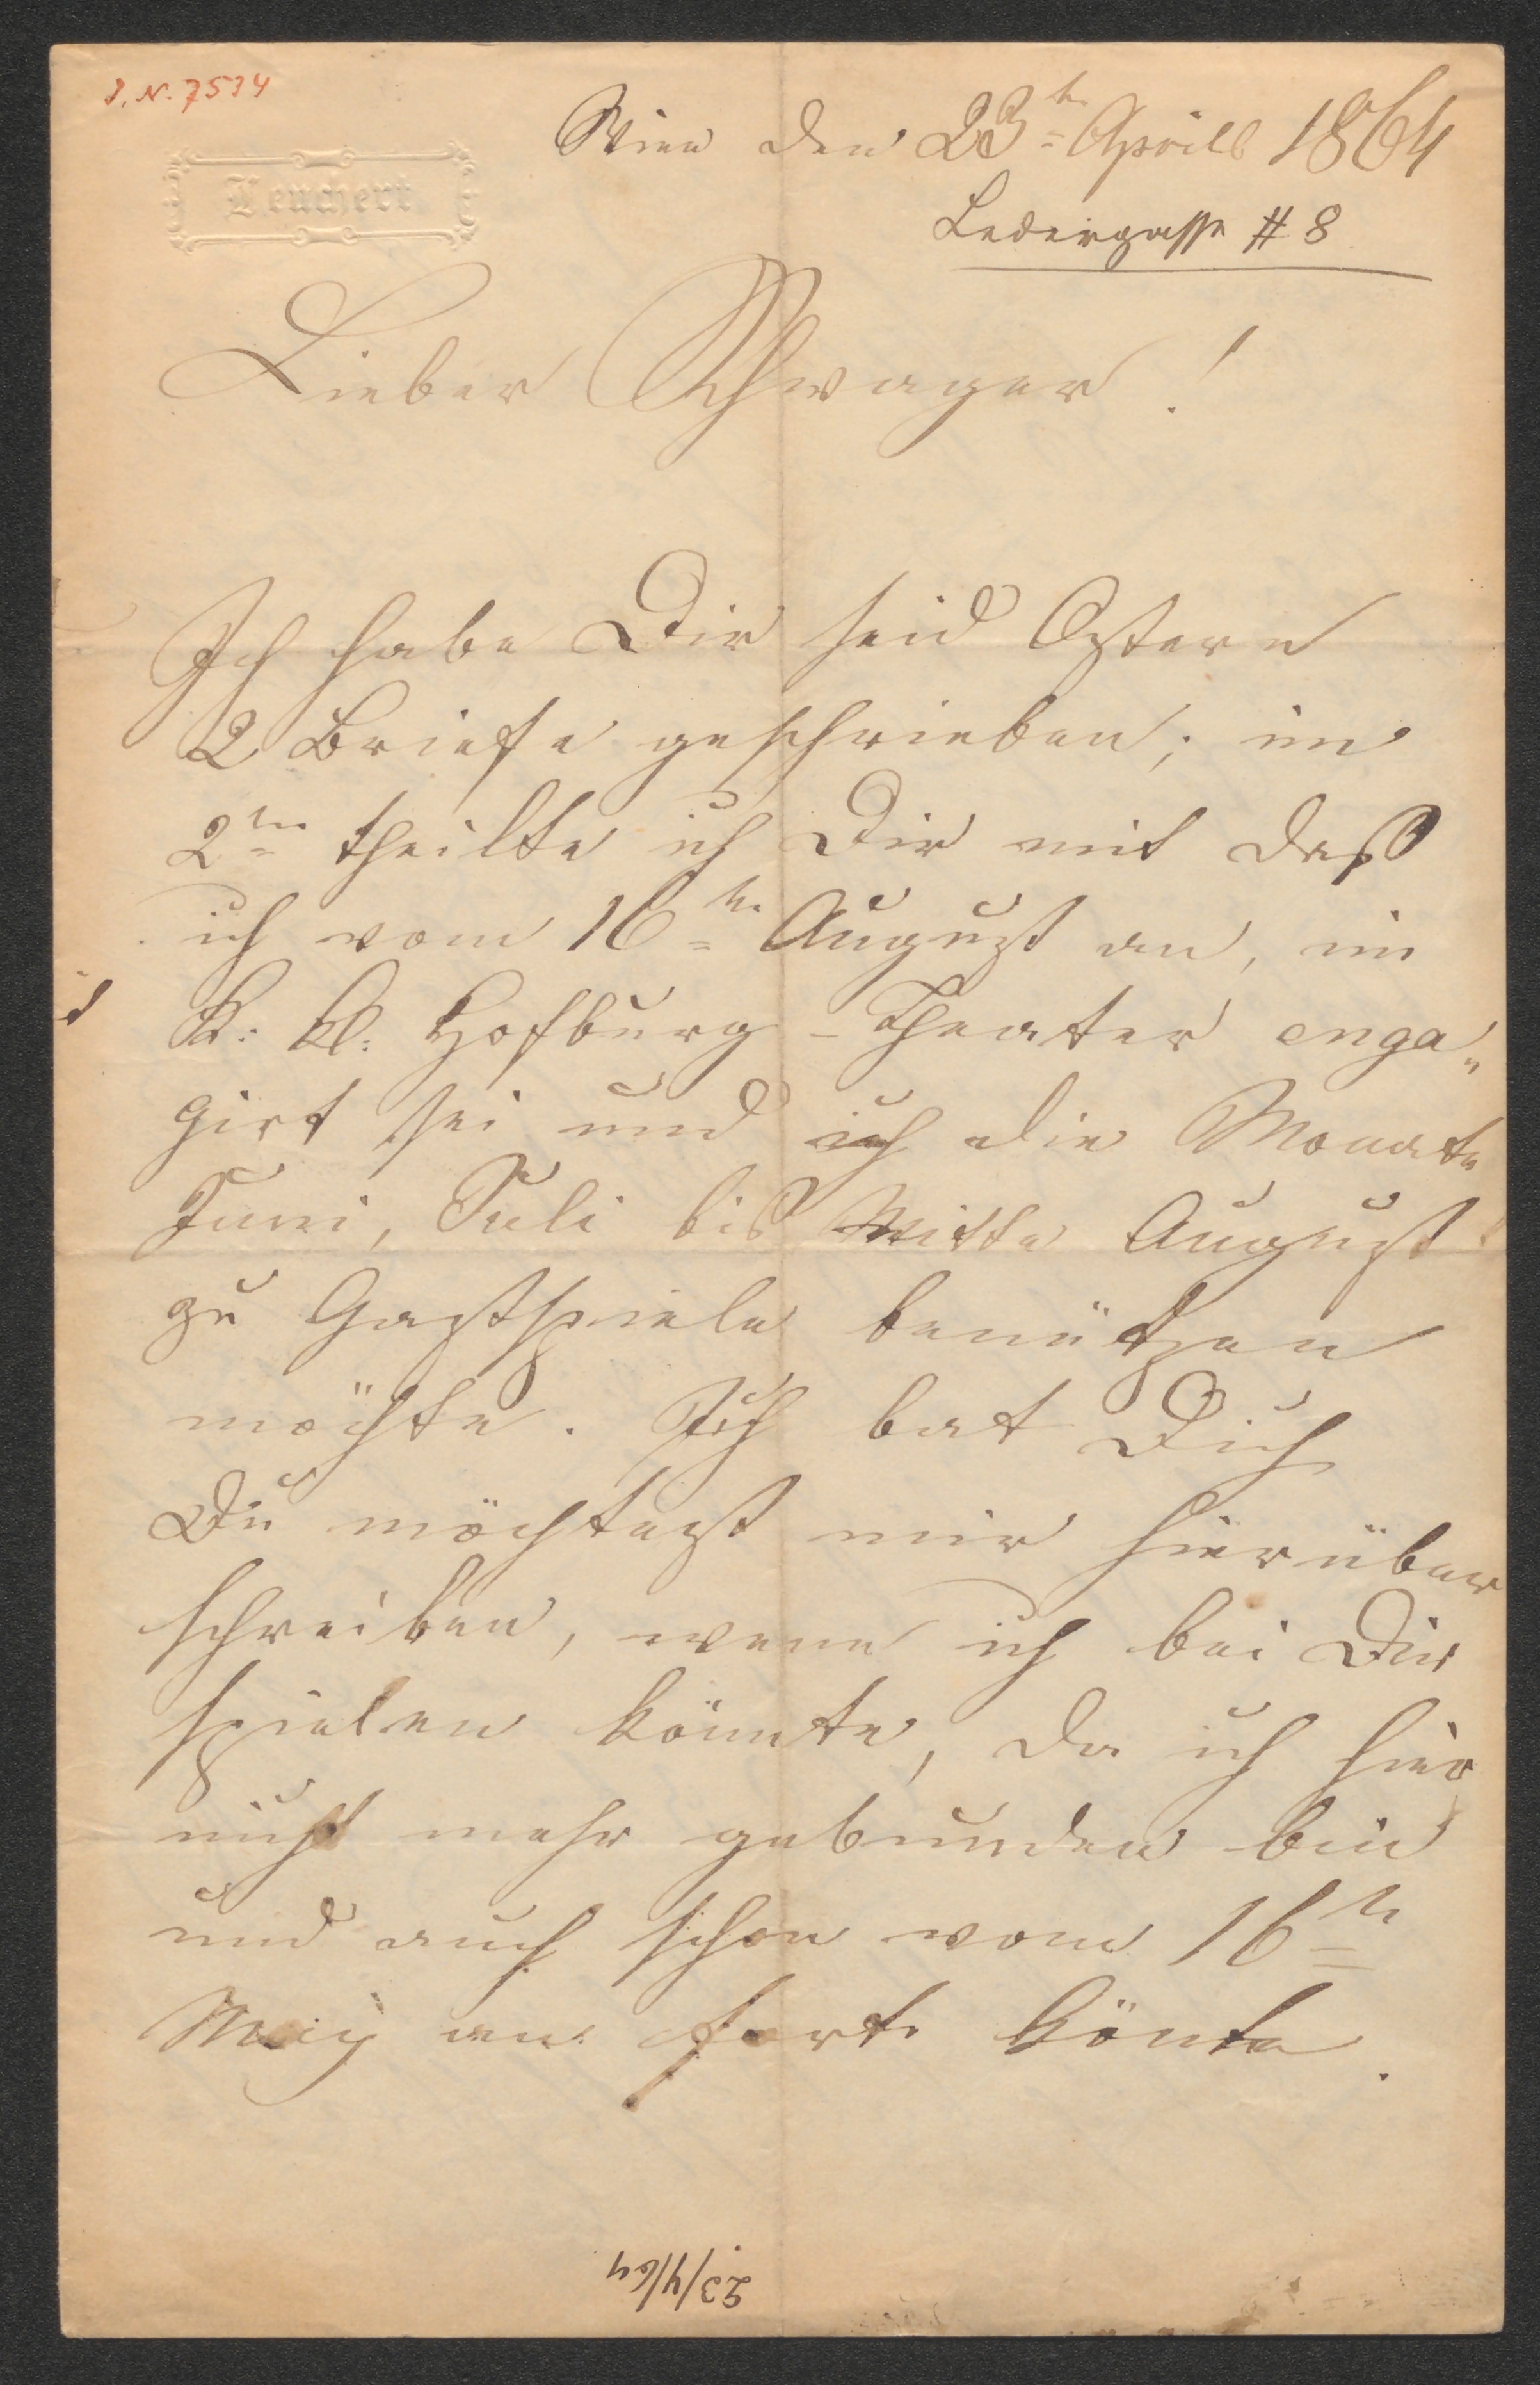 I. N. 7574
Leuchert
Wien den 23ten Aprill 1864
Ledergasse # 8
Lieber Schwager!
Ich habe Dir seid Ostern
2 Briefe geschrieben; im
2ten theilte ich Dir mit daß
ich vom 16ten August an, im
K: K: Hofburg-Theater enga„
girt sei und ich die Monate
Juni, Juli bis Mitte August
zu Gastspiele benützen
möchte. Ich bat Dich
Du möchtest mir hierüber
schreiben, wenn ich bei Dir
spielen könnte, da ich hier
nicht mehr gebunden bin
und auch schon vom 16ten
May an fort könte.
23/4/64